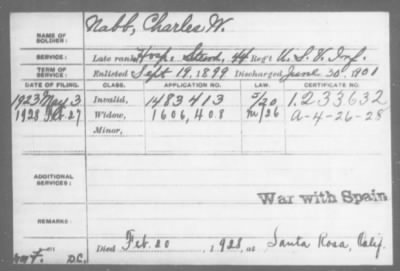 NAME OF SOLDIER: Nabb, Charles W.
SERVICE: Late rank, Hosp. Stew'd, 44 Reg't U. S. V. Inf.
TERM OF SERVICE: Enlisted Sept 19, 1899 Discharged June 30, 1901
DATE OF FILING. CLASS. APPLICATION NO. LAW. CERTIFICATE NO.
1923 May 3 Invalid, 1483413 5/20 1.233.632
1928 27 Widow, 1606,408 m/26 a-4-26-28
Minor,
ADDITIONAL SERVICES:
War with Spain
REMARKS:
Died Feb. 20, 1928, at Santa Rosa, Calif.
D.C.